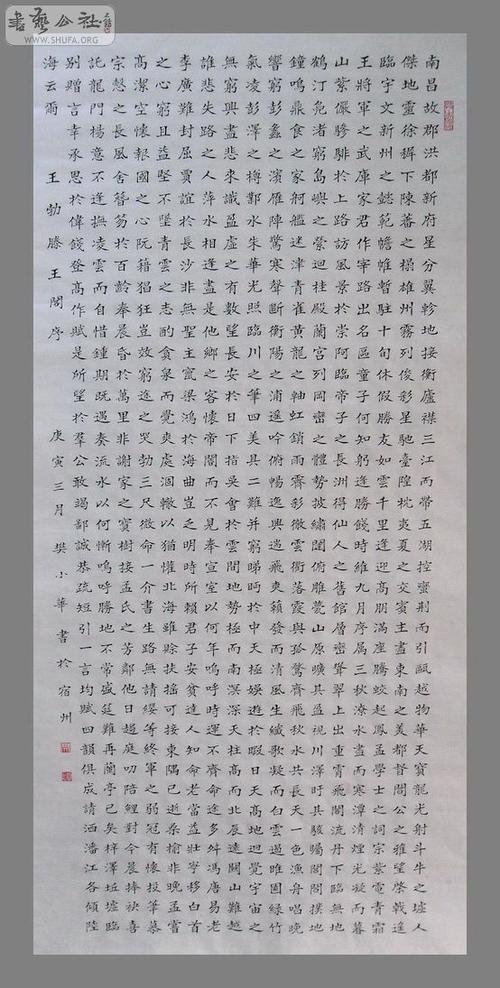 書藝公社
WWW.SHUFA.ORG
南昌故郡洪都新府星分翼軫地接衡廬襟三江而帶五湖控蠻荊而引甌越物華天寶龍光射斗牛之墟人
傑地靈徐孺下陳蕃之榻雄州霧列俊彩星馳臺隍枕夷夏之交賓主盡東南之美都督閻公之雅望棨戟遙
臨宇文新州之懿範襜帷暫駐十旬休假勝友如雲千里逢迎高朋滿座騰蛟起鳳孟學士之詞宗紫電青霜
王將軍之武庫家君作宰路出名區童子何知躬逢勝餞時維九月序属三秋潦水盡而寒潭清煙光凝而暮
山紫儼驂騑於上路訪風景於崇阿臨帝子之長洲得仙人之舊館層巒聳翠上出重霄飛閣流丹下臨無地
鶴汀鳧渚窮島嶼之縈迴桂殿蘭宮列岡巒之體勢披繡闥俯雕甍山原曠其盈視川澤盱其駭矚閭閻撲地
鐘鳴鼎食之家舸艦迷津青雀黃龍之軸虹銷雨霽彩徹雲衢落霞與孤鶩齊飛秋水共長天一色漁舟唱晚
響窮彭蠡之濱雁陣驚寒聲斷衡陽之浦遙吟俯暢逸興遄飛爽籟發而清風生纖歌凝而白雲遏睢園綠竹
氣凌彭澤之樽鄴水朱華光照臨川之筆四美具二難并窮睇眄於中天極娛遊於暇日天高地迥覺宇宙之
無窮興盡悲來識盈虛之有數望長安於日下指吳會於雲間地勢極而南溟深天柱高而北辰遠關山難越
誰悲失路之人萍水相逢盡是他鄉之客懷帝閽而不見奉宣室以何年嗚呼時運不齊命途多舛馮唐易老
李廣難封屈賈誼於長沙非無聖主竄梁鴻於海曲豈乏明時所賴君子安貧達人知命老當益壯寧移白首
之心窮且益堅不墜青雲之志酌貪泉而覺爽處涸轍以猶懽北海雖賒扶搖可接東隅已逝桑榆非晚孟嘗
高潔空懷報國之心阮籍猖狂豈效窮途之哭勃三尺微命一介書生路無請纓等終軍之弱冠有懷投筆慕
宗愨之長風舍簪笏於百齡奉晨昏於萬里非謝家之寶樹接孟氏之芳鄰他日趨庭叨陪鯉對今晨捧袂喜
託龍門楊意不逢撫凌雲而自惜鍾期既遇奏流水以何慚嗚呼勝地不常盛筵難再蘭亭已矣梓澤坵墟臨
別贈言幸承恩於偉餞登高作賦是所望於羣公敢竭鄙誠恭疏短引一言均賦四韻俱成請洒潘江各傾陸
海云爾 王勃滕王閣序 庚寅三月 樊小華書於宿州